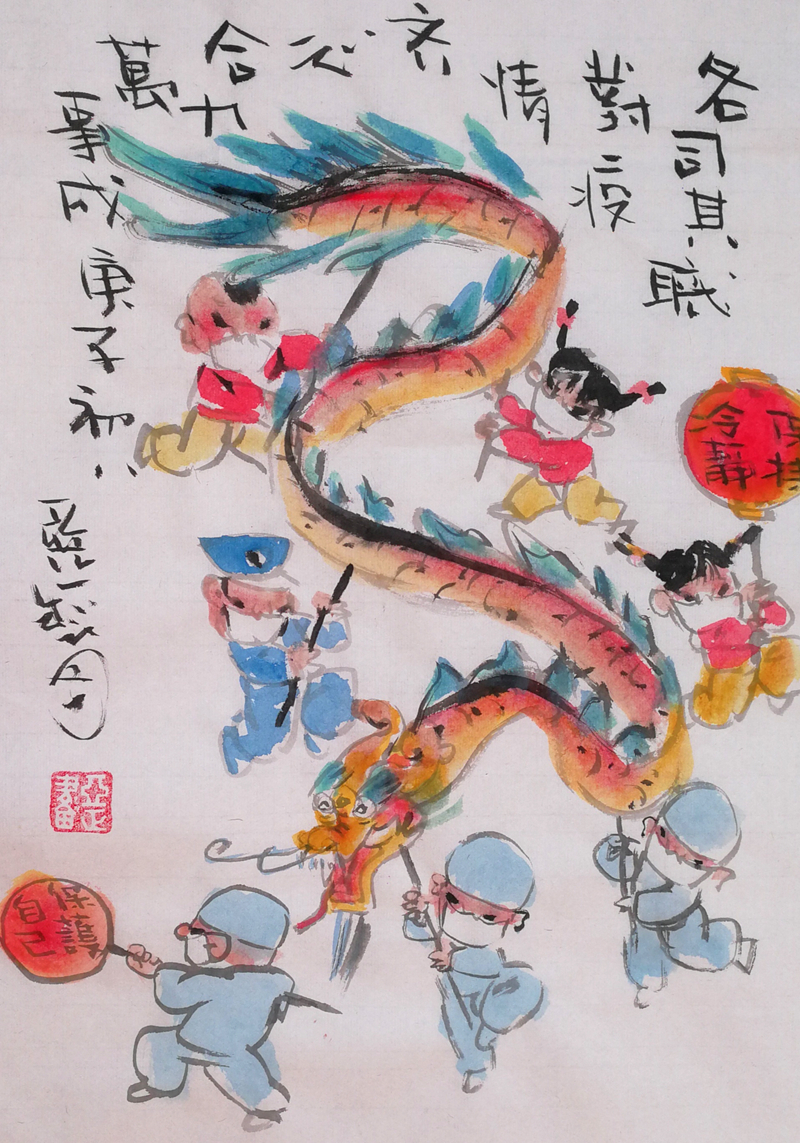 各司其職
對疫
情
齐心
合力
萬
事成
庚子初八
冷靜
保護
自己